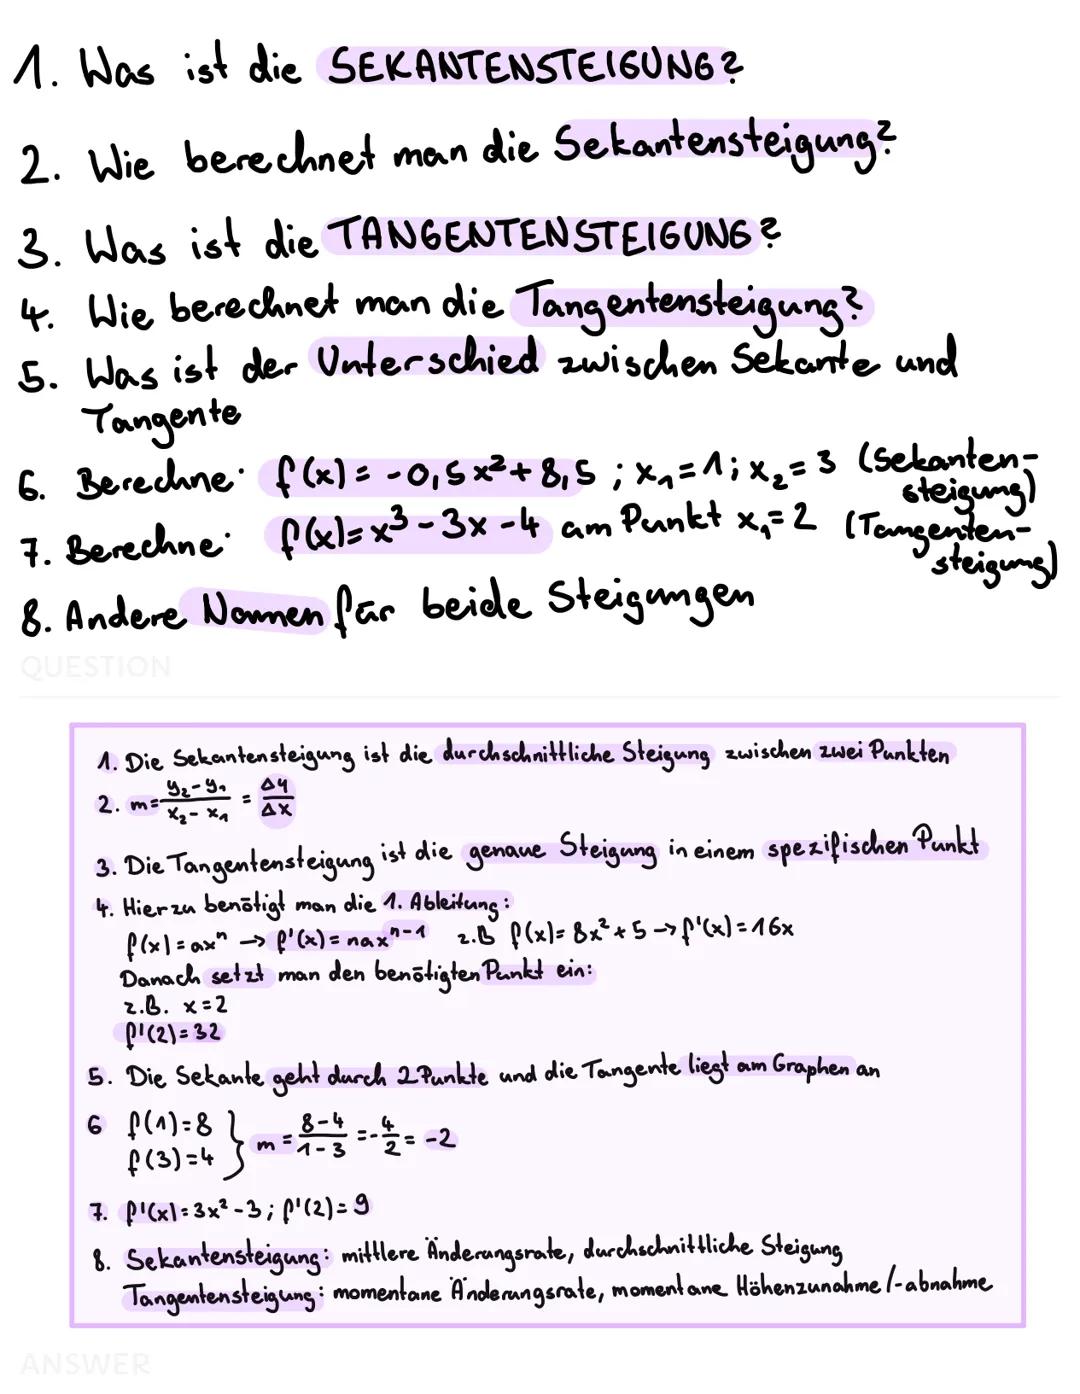 1. Was ist die SEKANTENSTEIGUNG?
2. Wie berechnet man die Sekantensteigung?
3. Was ist die TANGENTENSTEIGUNG?
4. Wie berechnet man die Tangentensteigung?
5. Was ist der Unterschied zwischen Sekante und
Tangente
6. Berechne: f(x) = -0,5x²+8,5 ; x₁=1; x₂=3 (Sekanten-
steigung)
7. Berechne: f(x)=x³-3x-4 am Punkt x₁=2 (Tangenten-
steigung)
8. Andere Namen für beide Steigungen
QUESTION
1. Die Sekantensteigung ist die durchschnittliche Steigung zwischen zwei Punkten
2. m= (y₂-y₁)/(x₂-x₁) = Δy/Δx
3. Die Tangentensteigung ist die genaue Steigung in einem spezifischen Punkt
4. Hierzu benötigt man die 1. Ableitung:
f(x)=axⁿ → f'(x)=naxⁿ⁻¹ z.B f(x)=8x²+5→f'(x)=16x
Danach setzt man den benötigten Punkt ein:
z.B. x=2
f'(2)=32
5. Die Sekante geht durch 2 Punkte und die Tangente liegt am Graphen an
6 f(1)=8
f(3)=4 } m = (8-4)/(1-3) = -4/2 = -2
7. f'(x)=3x²-3; f'(2)=9
8. Sekantensteigung: mittlere Änderungsrate, durchschnittliche Steigung
Tangentensteigung: momentane Änderungsrate, momentane Höhenzunahme/-abnahme
ANSWER